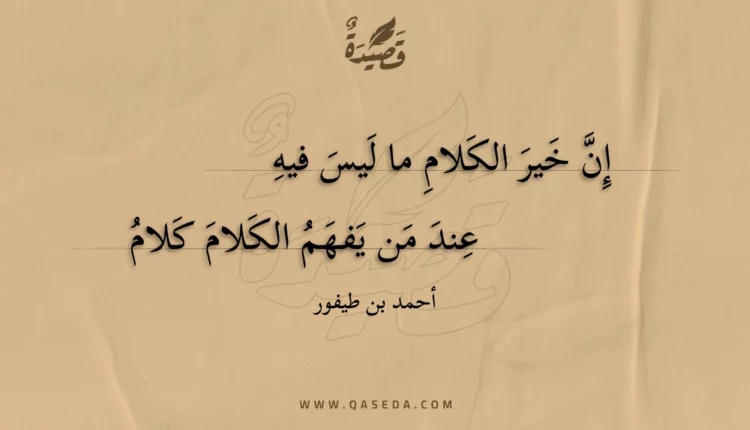 قَصِيدَةٌ
إِنَّ خَيرَ الكَلامِ ما لَيسَ فيهِ
عِندَ مَن يَفهَمُ الكَلامَ كَلامُ
أحمد بن طيفور
WWW.QASEDA.COM